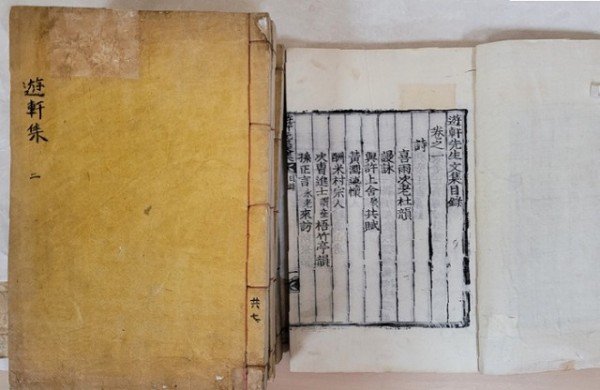 遊軒集 二
共七
遊軒先生文集目錄
卷之一
詩
喜雨次老杜韻
謾詠
與許上舍 共賦
黃澗 懷
酬米村宗人
次曺進士 梧竹亭韻
孫正言 來訪